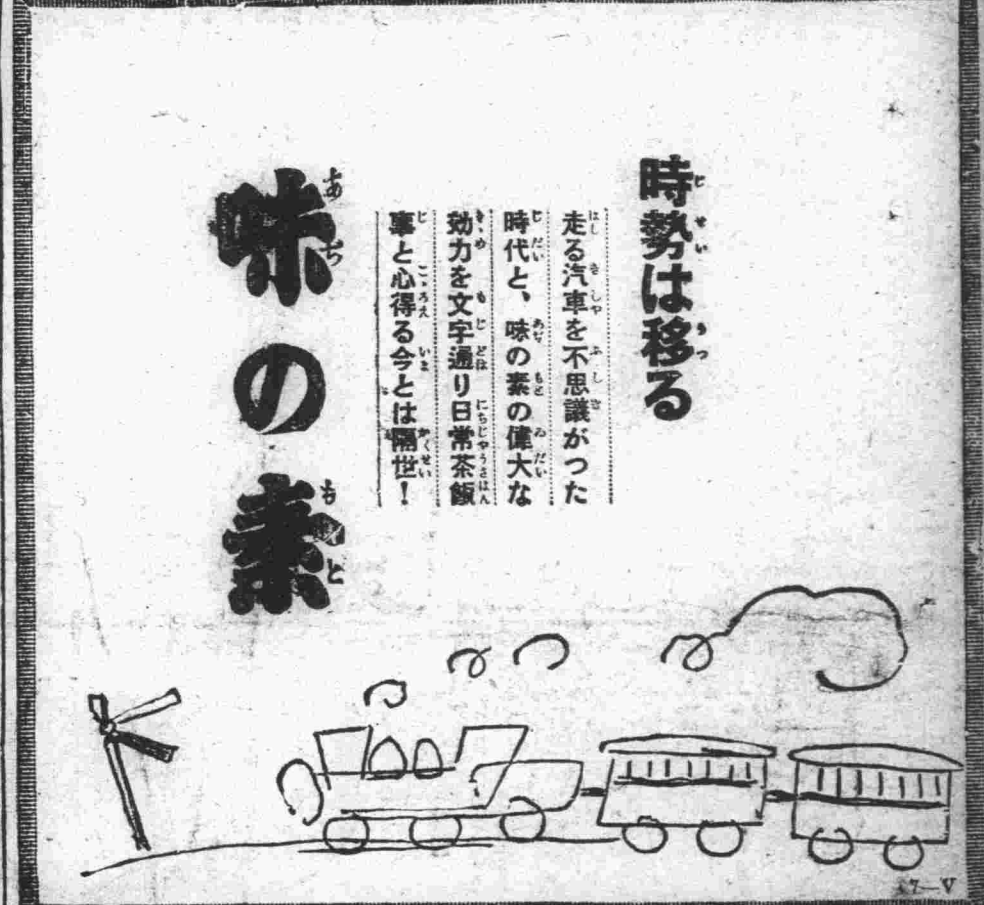 時勢は移る
走る汽車を不思議がつた
時代と、味の素の偉大な
効力を文字通り日常茶飯
事と心得る今とは隔世！
味の素